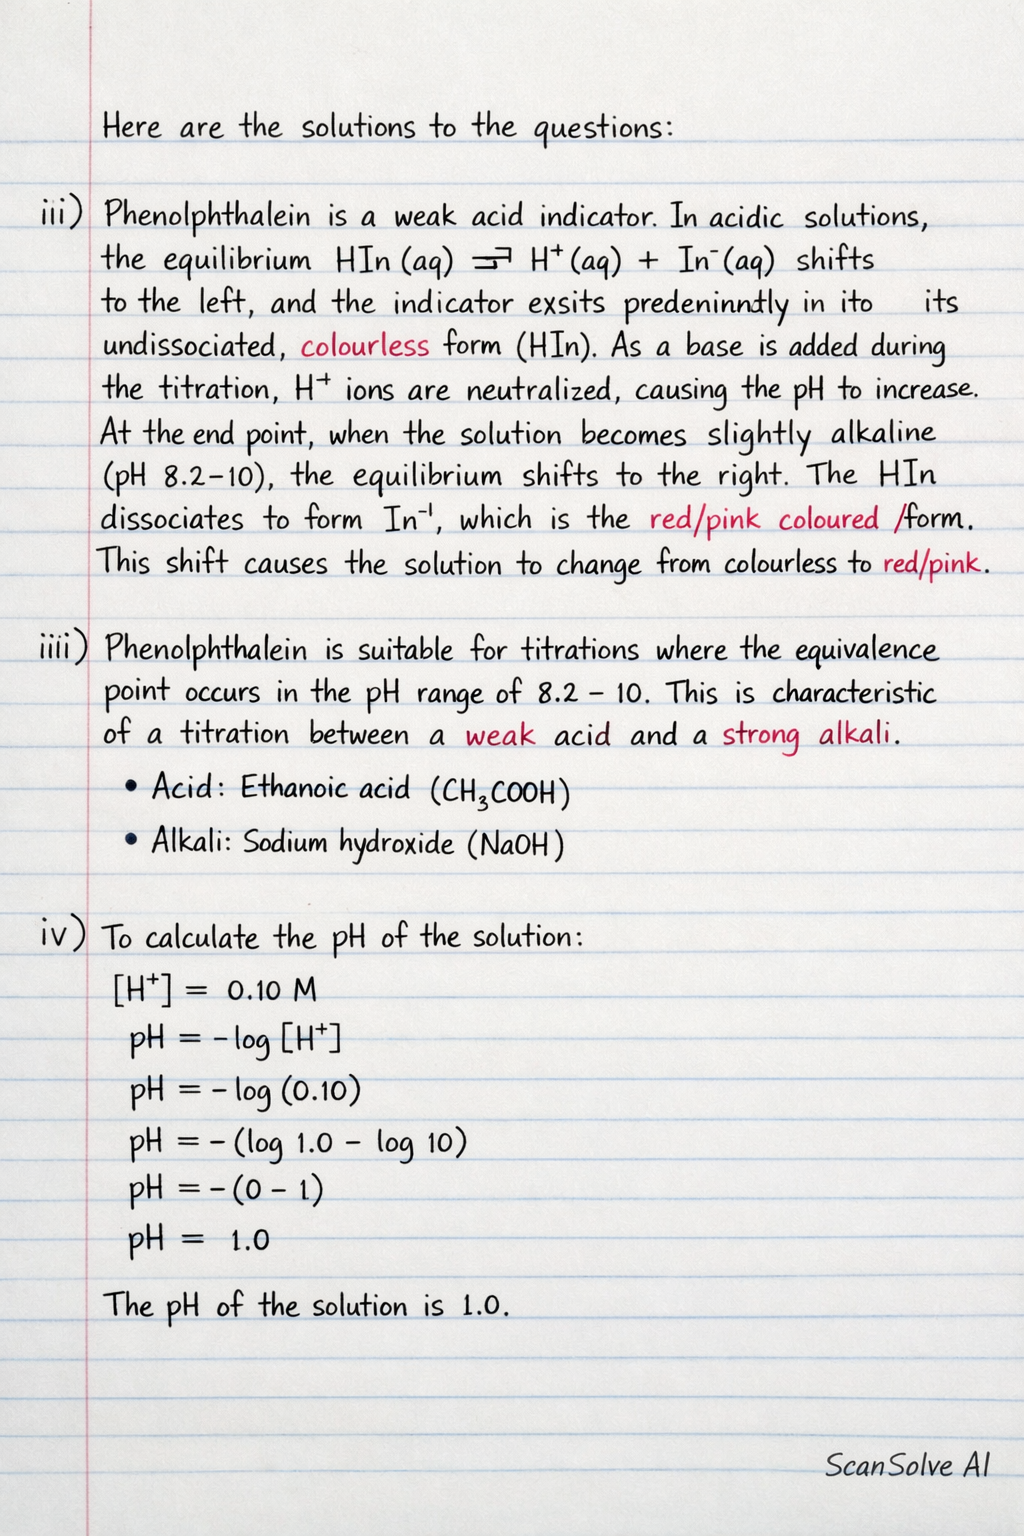 Here are the solutions to the questions:
iii) Phenolphthalein is a weak acid indicator. In acidic solutions,
the equilibrium HIn (aq) ⇌ H⁺(aq) + In⁻(aq) shifts
to the left, and the indicator exsits predeninndly in ito its
undissociated, colourless form (HIn). As a base is added during
the titration, H⁺ ions are neutralized, causing the pH to increase.
At the end point, when the solution becomes slightly alkaline
(pH 8.2-10), the equilibrium shifts to the right. The HIn
dissociates to form In⁻¹, which is the red/pink coloured /form.
This shift causes the solution to change from colourless to red/pink.
iiii) Phenolphthalein is suitable for titrations where the equivalence
point occurs in the pH range of 8.2 – 10. This is characteristic
of a titration between a weak acid and a strong alkali.
• Acid: Ethanoic acid (CH₃COOH)
• Alkali: Sodium hydroxide (NaOH)
iv) To calculate the pH of the solution:
[H⁺] = 0.10 M
pH = -log [H⁺]
pH = - log (0.10)
pH = - (log 1.0 – log 10)
pH = - (0 – 1)
pH = 1.0
The pH of the solution is 1.0.
ScanSolve AI